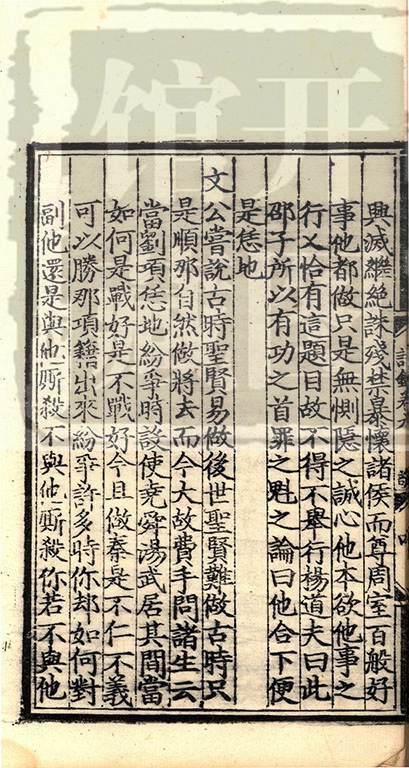 興滅繼絕誅殘禁暴懷諸侯而尊周室百般好
事他都做只是無惻隱之誠心他本欲他事之
行又恰有這題目故不得不舉行楊道夫曰此
邵子所以有功之首罪之魁之論曰他合下便
是恁地
文公嘗說古時聖賢易做後世聖賢難做古時只
是順那自然做將去而今大故費手問諸生云
當劉項恁地紛爭時設使堯舜湯武居其間當
如何是戰好是不戰好今且做秦是不仁不義
可以勝那項籍出來紛爭許多時你却如何對
副他還是與他厮殺不與他厮殺你若不與他
开
馆